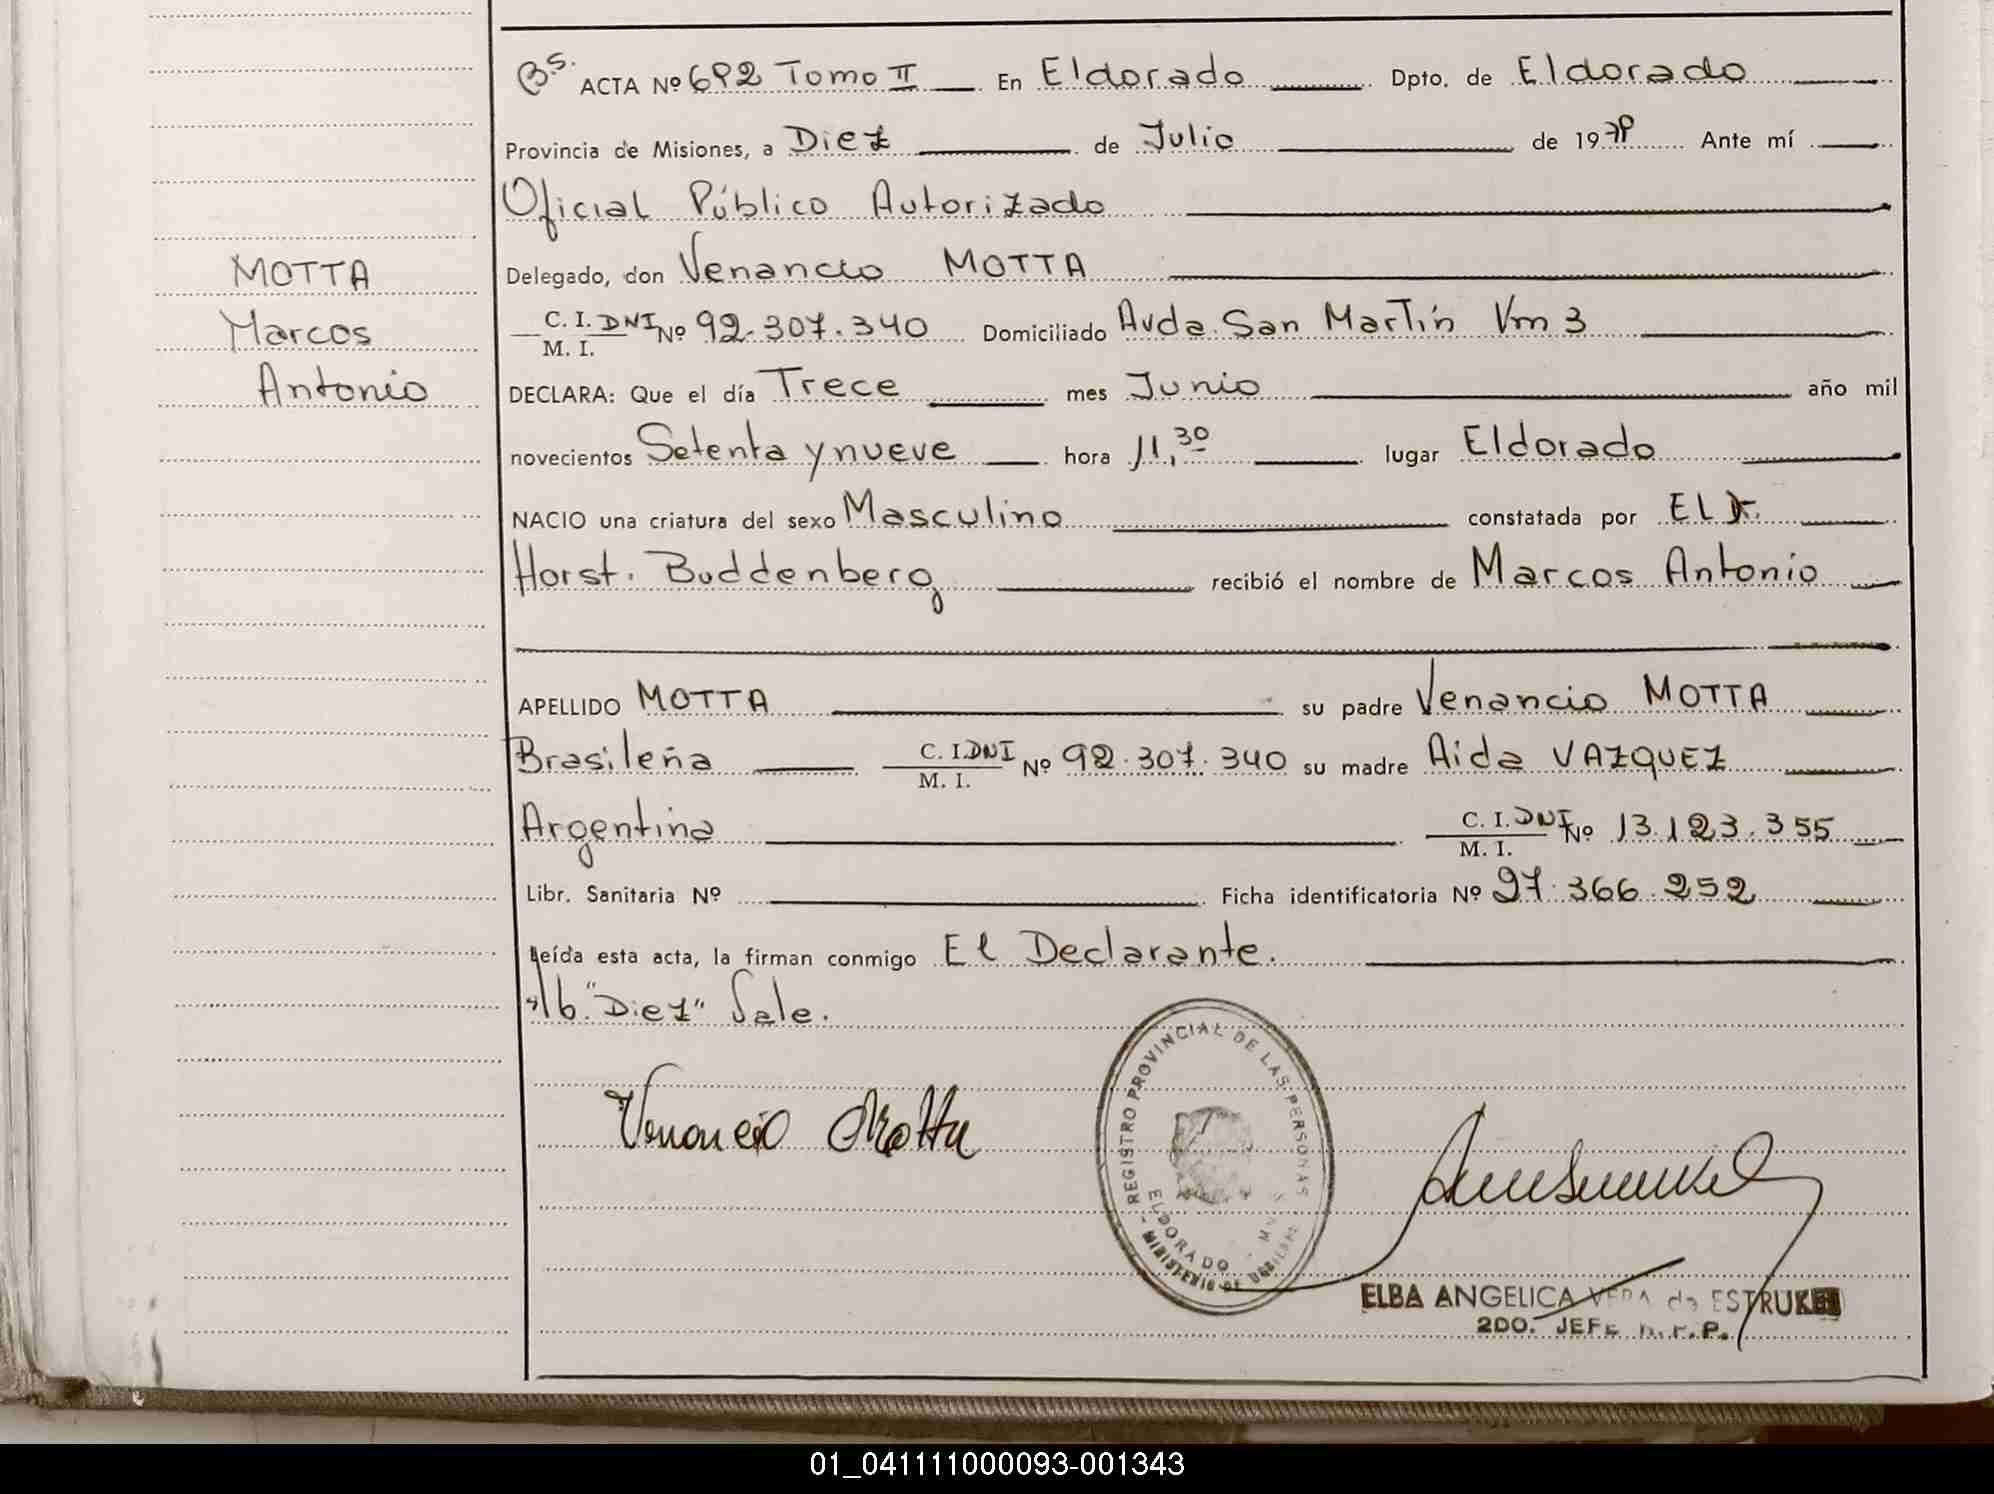 B.S. ACTA Nº 692 Tomo II En Eldorado Dpto. de Eldorado
Provincia de Misiones, a Diez de Julio de 1979 Ante mí
Oficial Público Autorizado
MOTTA
Marcos
Antonio
Delegado, don Venancio MOTTA
C. I. DNI Nº 92.307.340 Domiciliado Avda. San Martín Km 3
M. I.
DECLARA: Que el día Trece mes Junio año mil
novecientos Setenta y nueve hora 11,30 lugar Eldorado
NACIO una criatura del sexo Masculino constatada por El Dr.
Horst. Buddenberg recibió el nombre de Marcos Antonio
APELLIDO MOTTA su padre Venancio MOTTA
Brasileña C. I. DNI Nº 92.307.340 su madre Aida VAZQUEZ
M. I.
Argentina C. I. DNI Nº 13.123.355
M. I.
Libr. Sanitaria Nº Ficha identificatoria Nº 27.366.252
Leída esta acta, la firman conmigo El Declarante.
"Diez" Vale.
Venancio Motta
REGISTRO PROVINCIAL DE LAS PERSONAS
ELDORADO
MINISTERIO DE
ELBA ANGELICA VERA de ESTRUKEL
2DO. JEFE R.P.P.
01_041111000093-001343